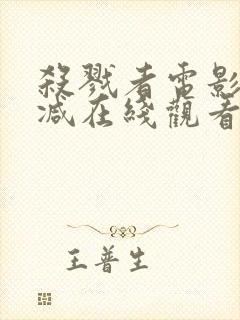 殺戮者電影
減在綫觀看
王普生